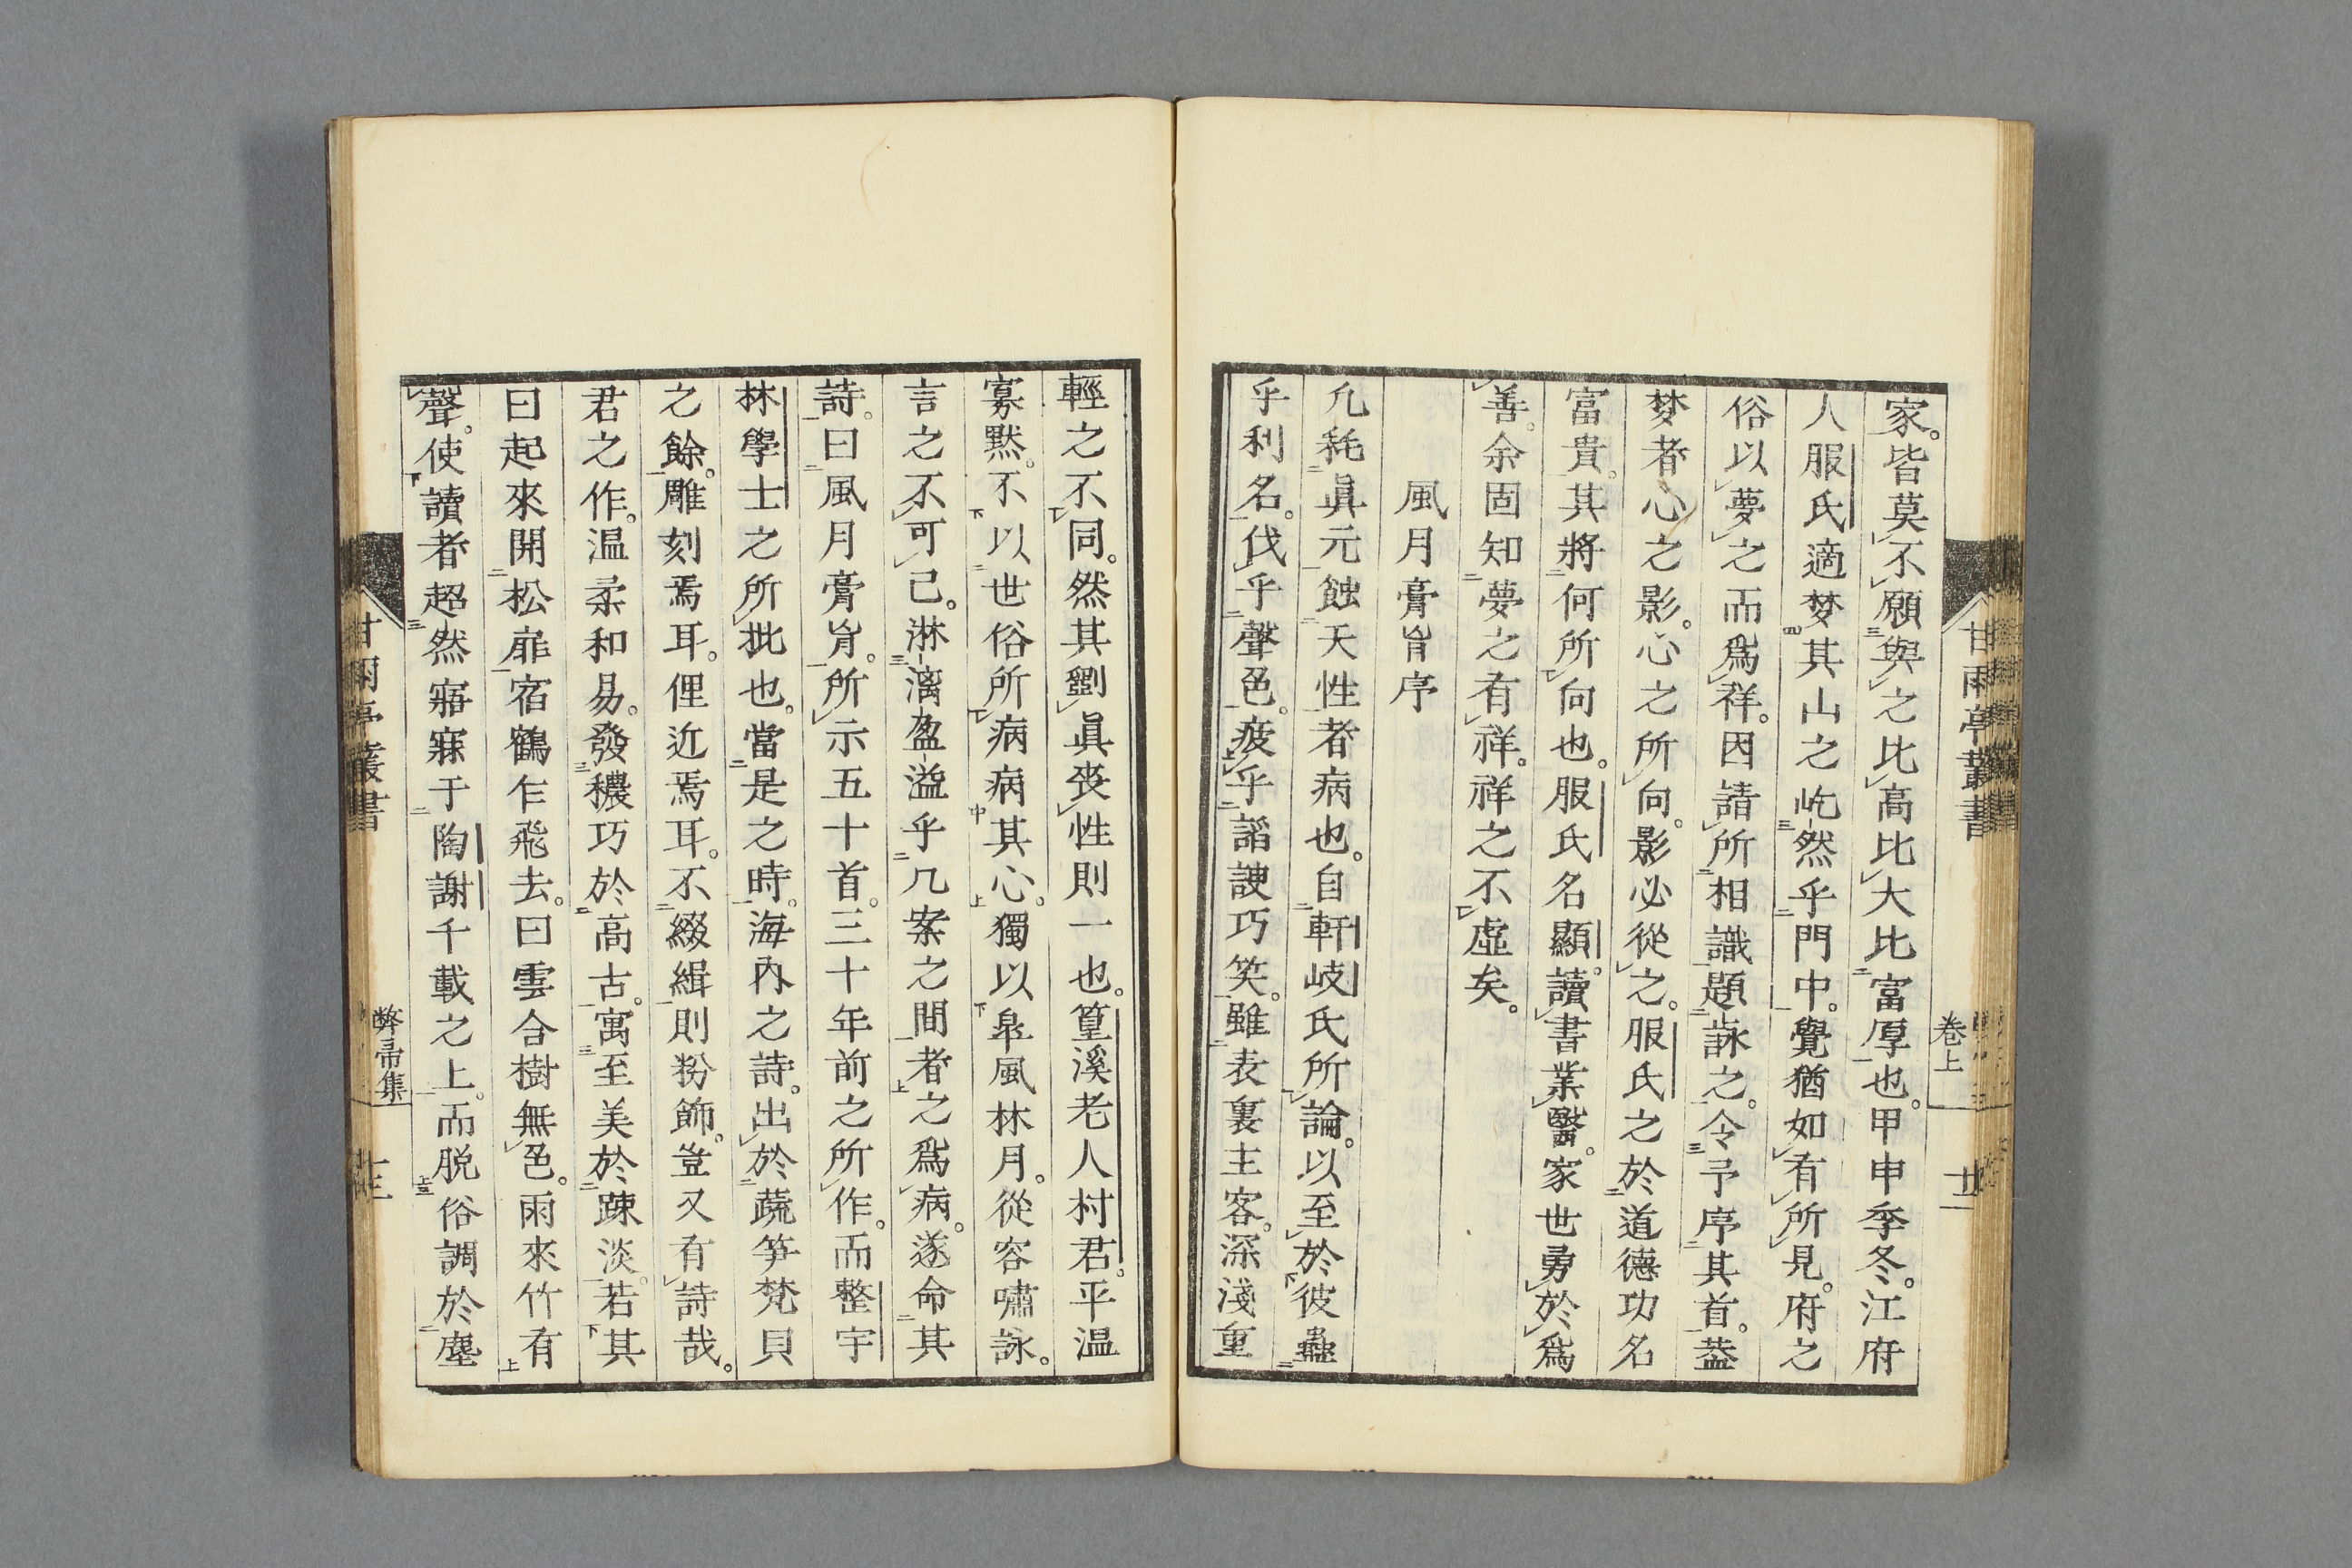 家。皆莫不願與之比高比大比富厚也。甲申季冬。江府
人服氏適梦其山之屹然乎門中。覺猶如有所見。府之
俗以夢之而爲祥。因請所相識題詠之。令予序其首。葢
梦者心之影。心之所向。影必從之。服氏之於道德功名
富貴。其將何所向也。服氏名顯。讀書業醫。家世勇於爲
善。余固知夢之有祥。祥之不虛矣。
風月膏肓序
凢耗眞元蝕天性者病也。自軒岐氏所論。以至於彼蠱
乎利名。伐乎聲色。疲乎諂諛巧笑。雖表裏主客。深淺重
輕之不同。然其劉眞喪性則一也。篁溪老人村君。平温
寡默。不以世俗所病病其心。獨以皐風林月。從容嘯詠。
言之不可已。淋漓盈溢乎几案之間者之爲病。遂命其
詩。曰風月膏肓。所示五十首。三十年前之所作。而整宇
林學士之所批也。當是之時。海内之詩。出於蔬笋梵貝
之餘。雕刻焉耳。俚近焉耳。不綴緝則粉飾。豈又有詩哉。
君之作。温柔和易。發穠巧於高古。寓至美於踈淡。若其
曰起來開松扉宿鶴乍飛去。曰雲合樹無色。雨來竹有
聲。使讀者超然寤寐于陶謝千載之上。而脱俗調於塵
甘雨亭叢書
卷上
甘雨亭叢書
弊帚集